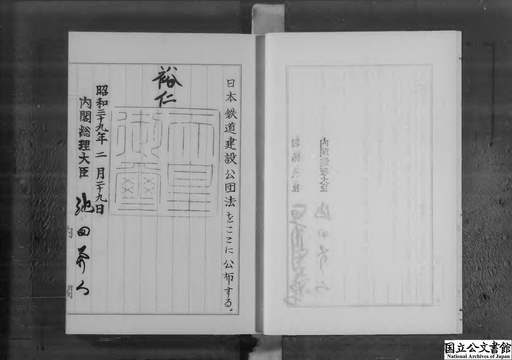 日本鉄道建設公団法をここに公布する。
裕仁
天皇
御璽
昭和三十九年二月二十九日
内閣総理大臣 池田勇人
内閣
内閣総理大臣 池田勇人
国立公文書館
National Archives of Japan